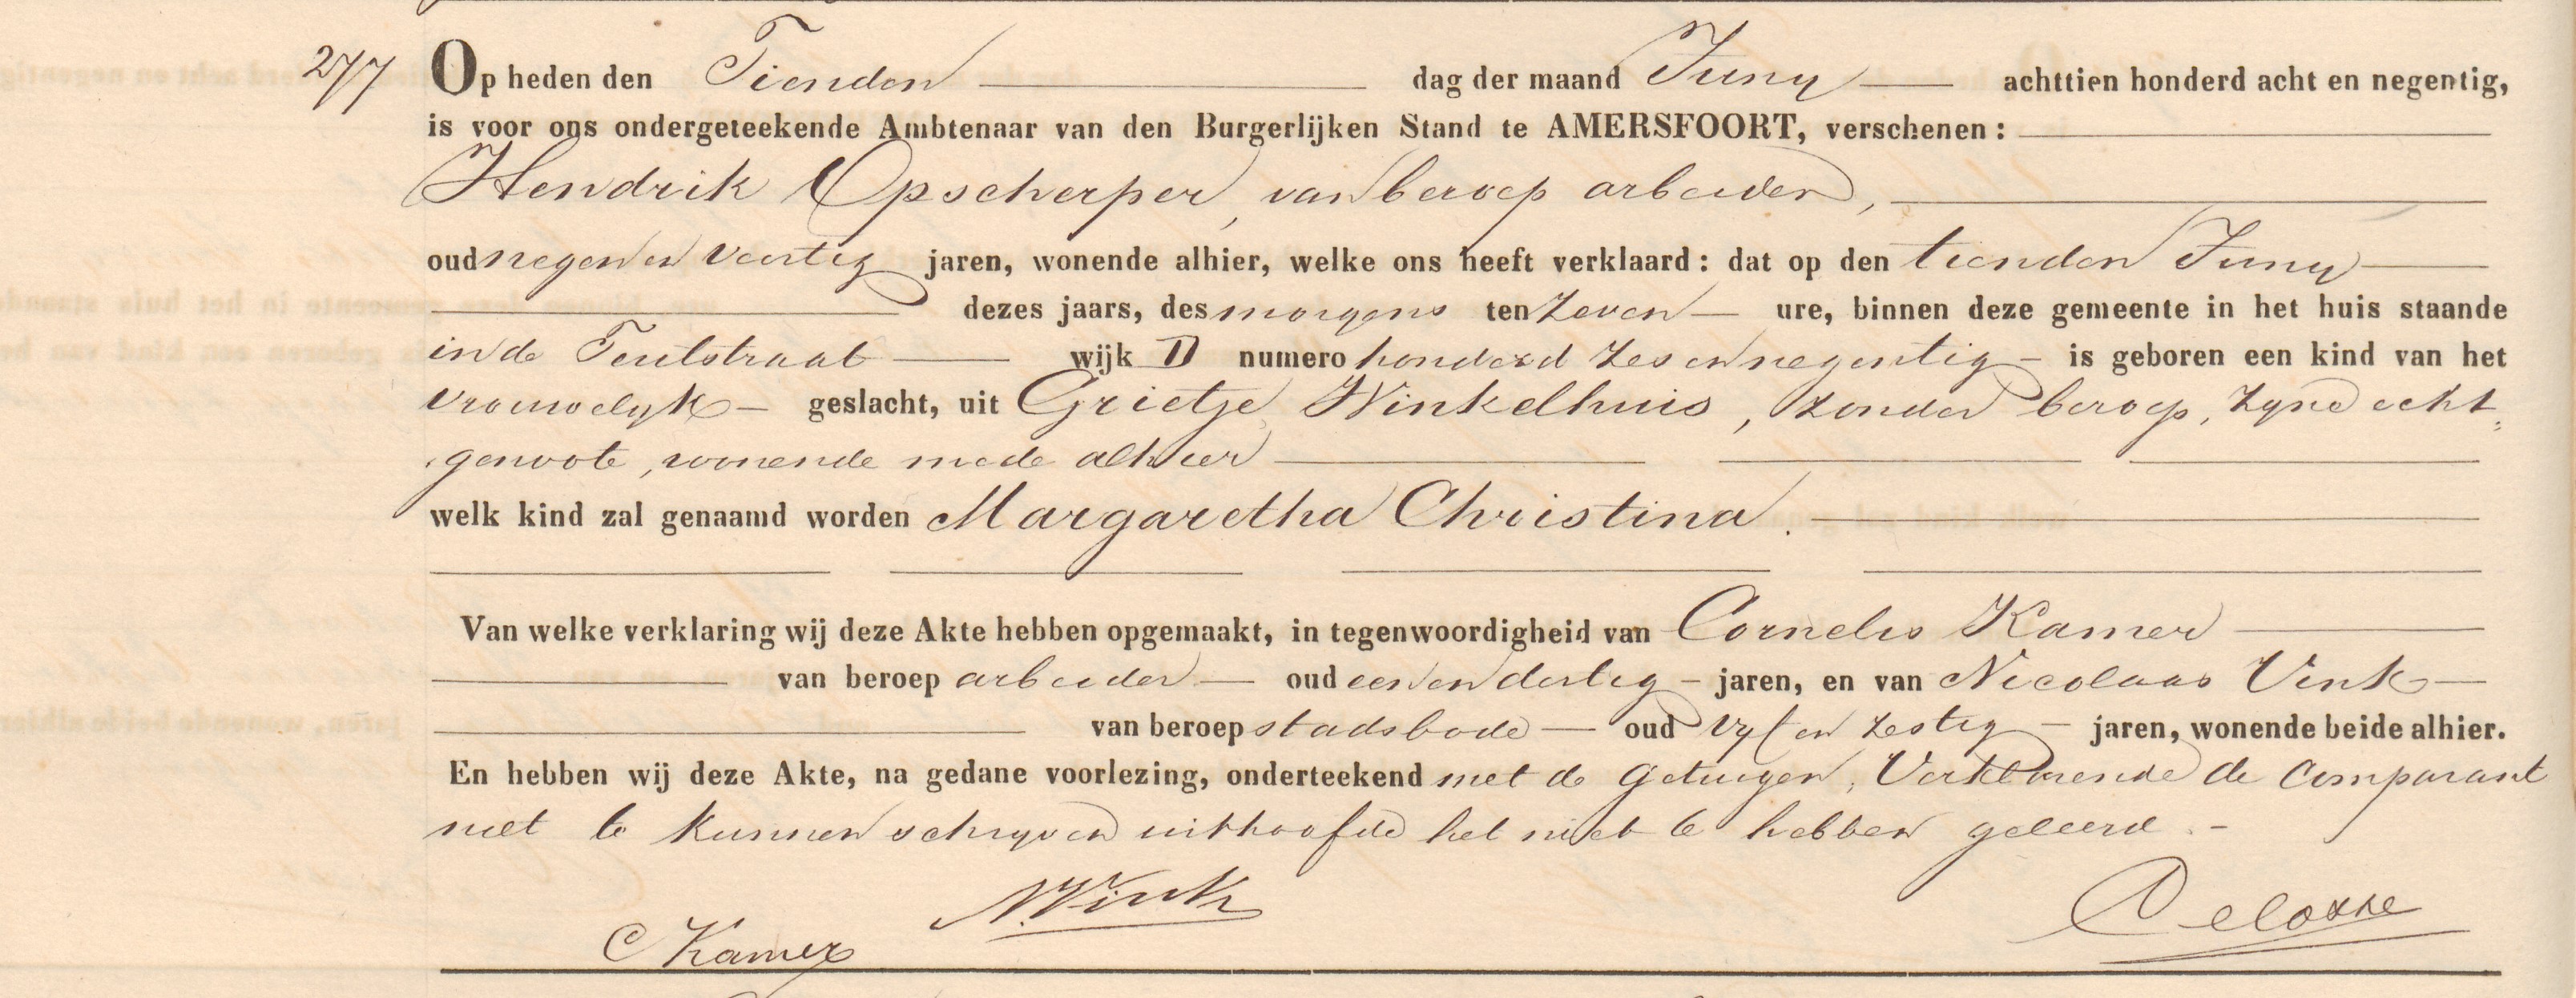 277 Op heden den Tienden dag der maand Juny achttien honderd acht en negentig,
is voor ons ondergeteekende Ambtenaar van den Burgerlijken Stand te AMERSFOORT, verschenen:
Hendrik Opscherper, van beroep arbeider,
oud negen en veertig jaren, wonende alhier, welke ons heeft verklaard: dat op den tienden Juny
dezes jaars, des morgens ten zeven ure, binnen deze gemeente in het huis staande
in de Teutstraat wijk D numero honderd zes en negentig is geboren een kind van het
vrouwelyk geslacht, uit Grietje Winkelhuis, zonder beroep, zyne echt
genoote, wonende mede alhier
welk kind zal genaamd worden Margaretha Christina.
Van welke verklaring wij deze Akte hebben opgemaakt, in tegenwoordigheid van Cornelis Kamer
van beroep arbeider oud een en dertig jaren, en van Nicolaas Vink
van beroep stadsbode oud vyf en zestig jaren, wonende beide alhier.
En hebben wij deze Akte, na gedane voorlezing, onderteekend met de getuigen, Verklarende de Comparant
niet te kunnen schryven uithoofde het niet te hebben geleerd.
N. Vink
C Kamer